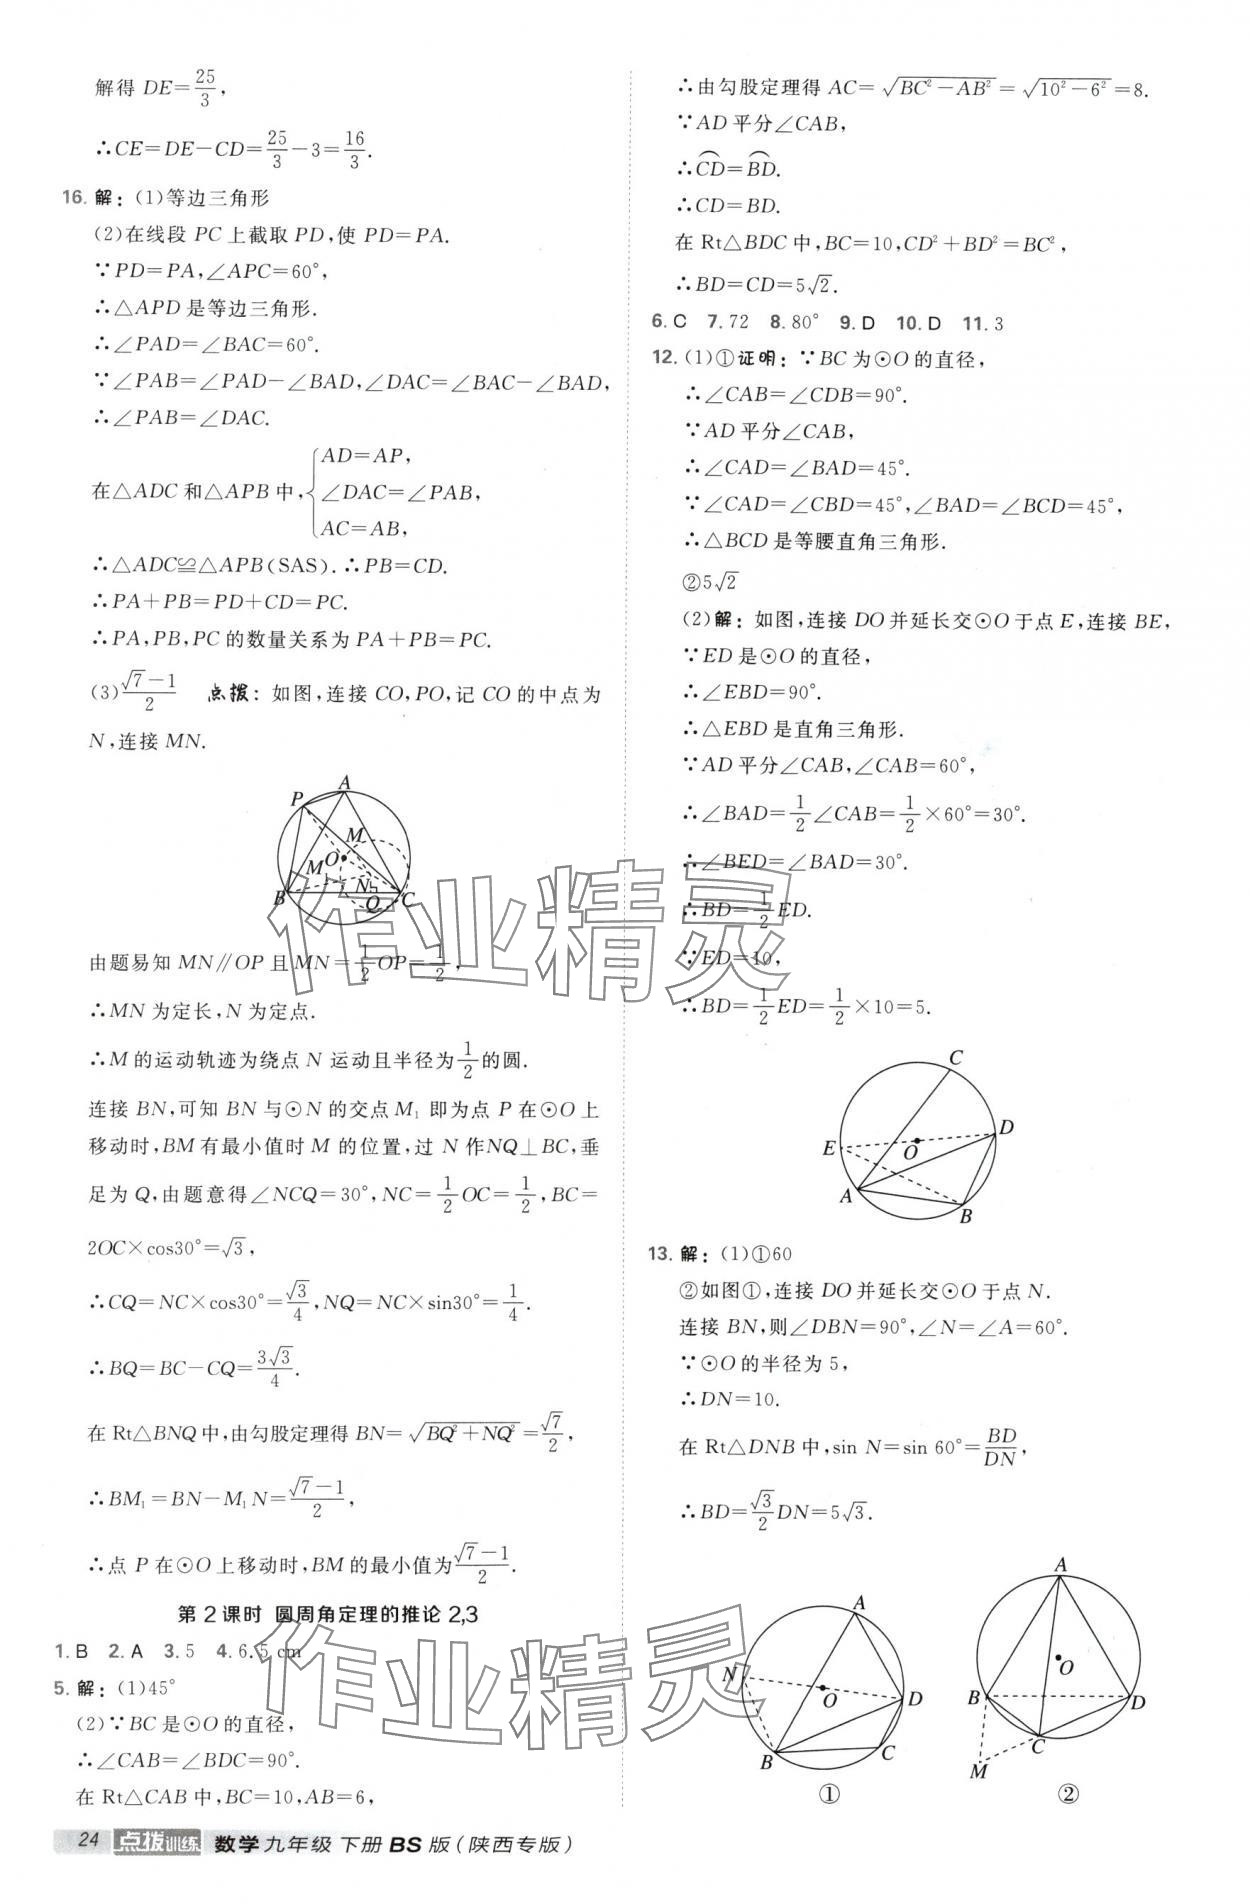 解得 DE=25/3,
∴CE=DE-CD=25/3-3=16/3.
16. 解:(1)等边三角形
(2)在线段 PC 上截取 PD,使 PD=PA.
∵PD=PA,∠APC=60°,
∴△APD 是等边三角形.
∴∠PAD=∠BAC=60°.
∵∠PAB=∠PAD-∠BAD,∠DAC=∠BAC-∠BAD,
∴∠PAB=∠DAC.
在△ADC 和△APB 中,{AD=AP,
∠DAC=∠PAB,
AC=AB,
∴△ADC≌△APB(SAS).∴PB=CD.
∴PA+PB=PD+CD=PC.
∴PA,PB,PC 的数量关系为 PA+PB=PC.
(3)(√7-1)/2 点拨:如图,连接 CO,PO,记 CO 的中点为
N,连接 MN.
P A M O M N B Q C
由题易知 MN∥OP 且 MN=1/2OP=1/2,
∴MN 为定长,N 为定点.
∴M 的运动轨迹为绕点 N 运动且半径为1/2的圆.
连接 BN,可知 BN 与⊙N 的交点 M₁ 即为点 P 在⊙O 上
移动时,BM 有最小值时 M 的位置,过 N 作NQ⊥BC,垂
足为 Q,由题意得∠NCQ=30°,NC=1/2OC=1/2,BC=
2OC×cos30°=√3,
∴CQ=NC×cos30°=√3/4,NQ=NC×sin30°=1/4.
∴BQ=BC-CQ=3√3/4.
在 Rt△BNQ 中,由勾股定理得 BN=√(BQ²+NQ²)=√7/2,
∴BM₁=BN-M₁N=(√7-1)/2,
∴点 P 在⊙O 上移动时,BM 的最小值为(√7-1)/2.
第 2 课时 圆周角定理的推论 2,3
1. B 2. A 3. 5 4. 6.5 cm
5. 解:(1)45°
(2)∵BC 是⊙O 的直径,
∴∠CAB=∠BDC=90°.
在 Rt△CAB 中,BC=10,AB=6,
∴由勾股定理得 AC=√(BC²-AB²)=√(10²-6²)=8.
∵AD 平分∠CAB,
∴⌒CD=⌒BD.
∴CD=BD.
在 Rt△BDC 中,BC=10,CD²+BD²=BC²,
∴BD=CD=5√2.
6. C 7. 72 8. 80° 9. D 10. D 11. 3
12. (1)①证明:∵BC 为⊙O 的直径,
∴∠CAB=∠CDB=90°.
∵AD 平分∠CAB,
∴∠CAD=∠BAD=45°.
∵∠CAD=∠CBD=45°,∠BAD=∠BCD=45°,
∴△BCD 是等腰直角三角形.
②5√2
(2)解:如图,连接 DO 并延长交⊙O 于点 E,连接 BE,
∵ED 是⊙O 的直径,
∴∠EBD=90°.
∴△EBD 是直角三角形.
∵AD 平分∠CAB,∠CAB=60°,
∴∠BAD=1/2∠CAB=1/2×60°=30°.
∴∠BED=∠BAD=30°.
∴BD=1/2ED.
∵ED=10,
∴BD=1/2ED=1/2×10=5.
C D O E A B
13. 解:(1)①60
②如图①,连接 DO 并延长交⊙O 于点 N.
连接 BN,则∠DBN=90°,∠N=∠A=60°.
∵⊙O 的半径为 5,
∴DN=10.
在 Rt△DNB 中,sin N=sin 60°=BD/DN,
∴BD=√3/2DN=5√3.
A N O D B C
①
A O B D C M
②
24 点拨训练 数学 九年级 下册 BS 版(陕西专版)
作业精灵
作业精灵